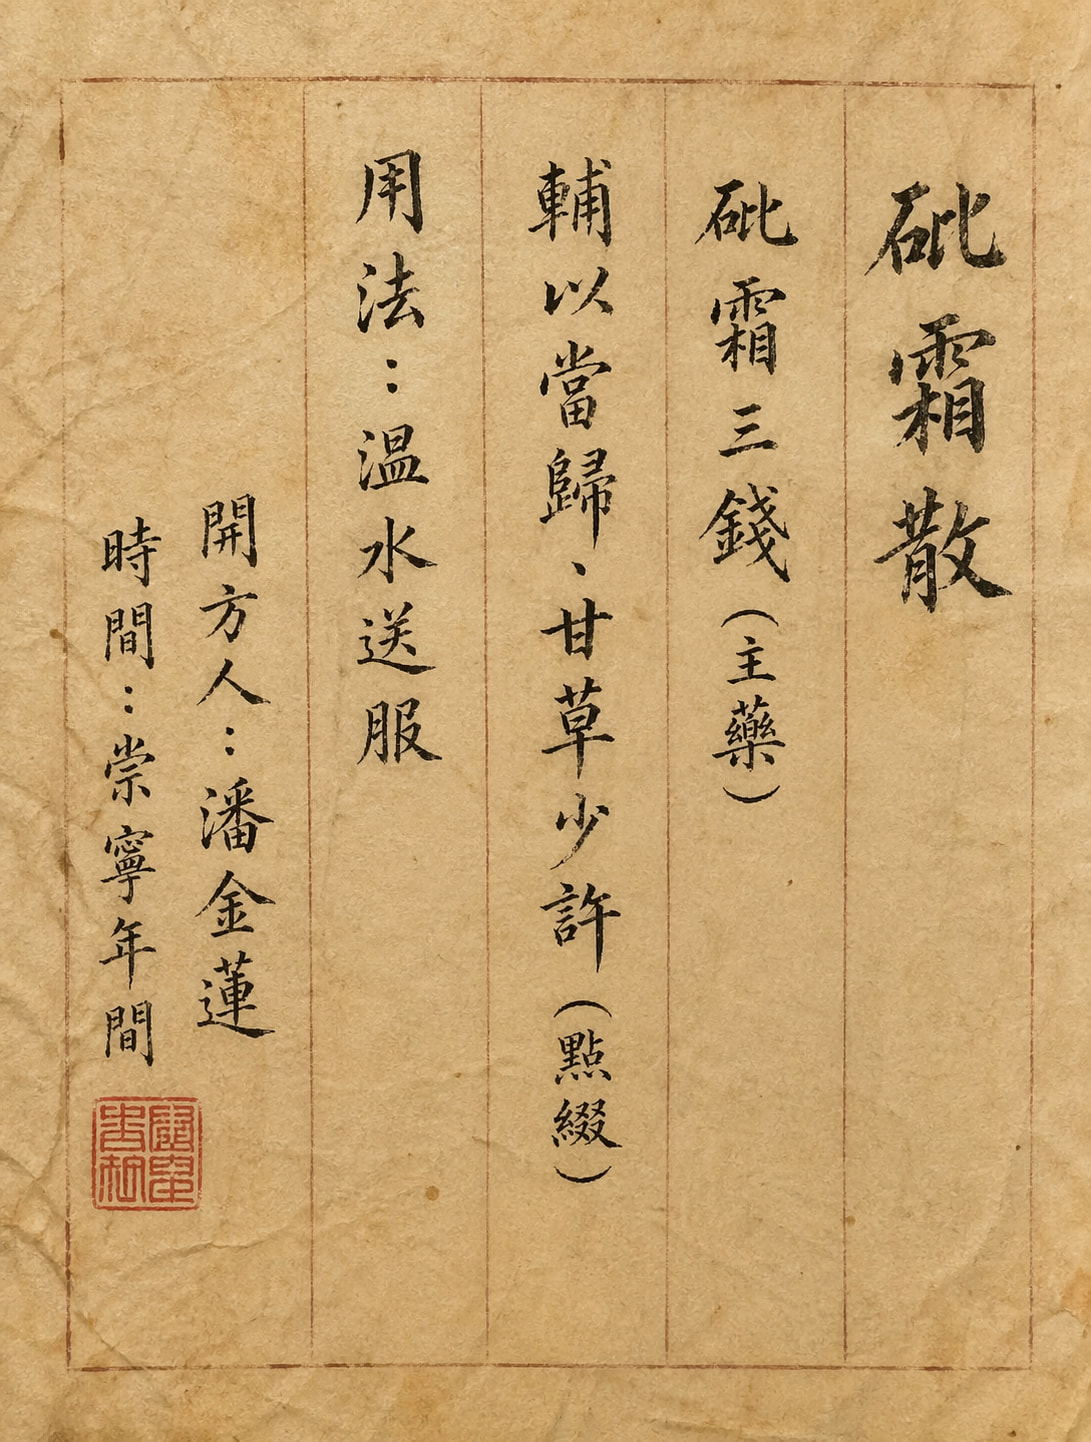 砒霜散
砒霜三錢（主藥）
輔以當歸、甘草少許（點綴）
用法：温水送服
開方人：潘金蓮
時間：崇寧年間